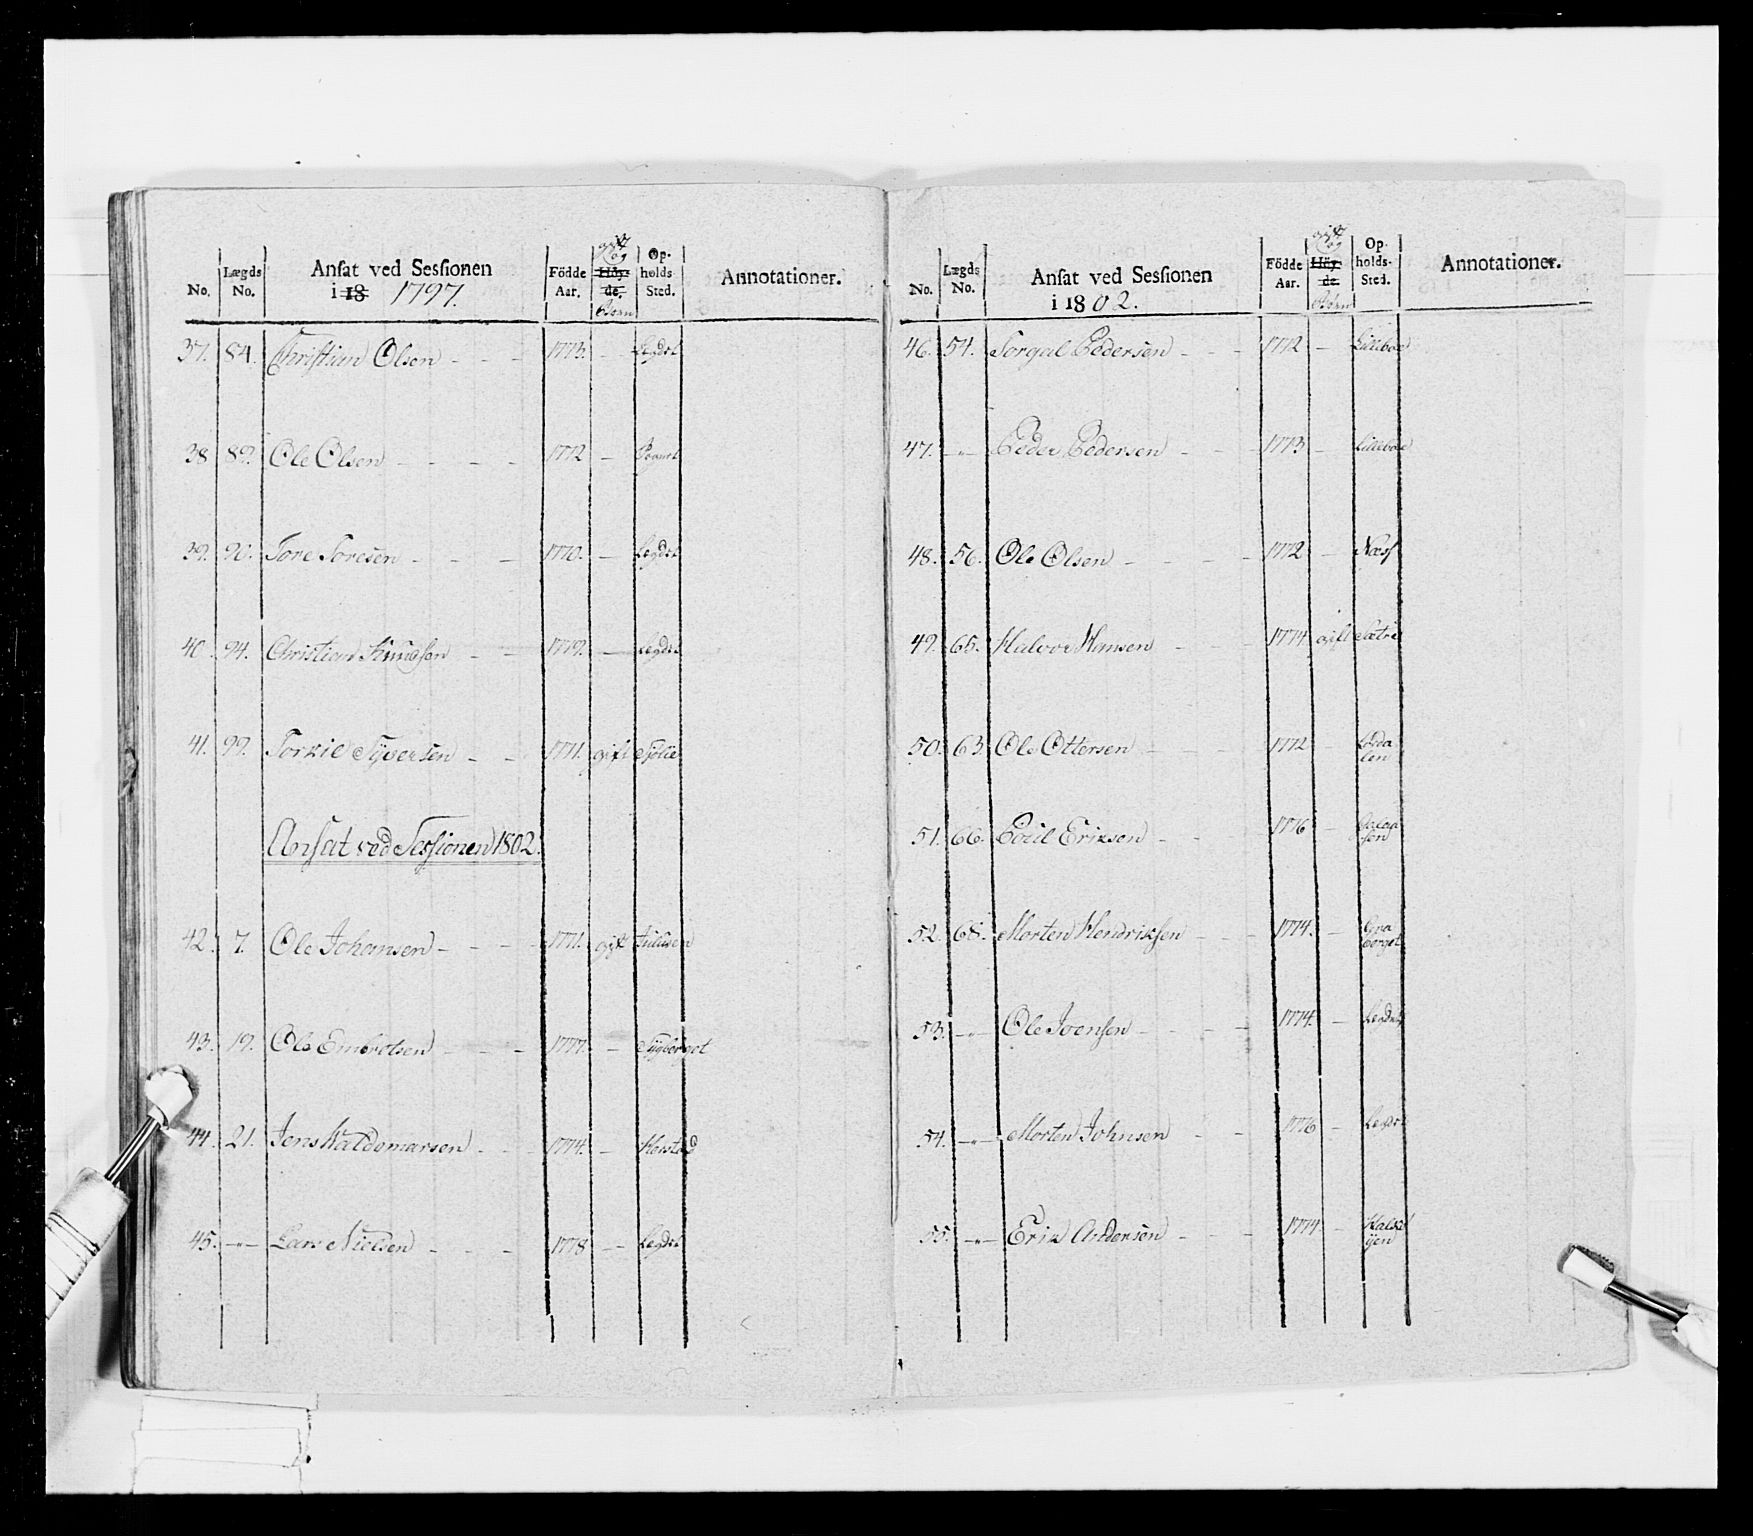 No. Lægds No. Ansat ved Sessionen i 18 1797. Födde Aar. gift og Höyde. Börn Opholds-Sted. Annotationer.
37. 84. Christian Olsen - - - 1773. - Legdet
38 89. Ole Olsen - - - - 1772 -
39. 90. Tore Toresen - - - 1770. - Legdet
40. 94. Christian Knudsen - - 1779. - Legdet
41. 99. Torkie Syversen - - 1771. gift
Ansat ved Sessionen 1802.
42. 7. Ole Johansen - - - - 1771. gift Julusen
43. 19. Ole Embretsen - - - 1777. - Sygberget
44. 21. Jens Waldemarsen - - 1774. - Herstad
45. -"- Lars Nielsen - - - 1778 - Legdet
No. Lægds No. Ansat ved Sessionen i 1802. Födde Aar. gift og Höyde. Börn Opholds-Sted. Annotationer.
46. 54. Torgal Pedersen - - 1772 - Lilleboe
47. -"- Peder Pedersen - - 1773 - Lilleboe
48. 56. Ole Olsen - - - - 1772 - Næss
49. 65. Halvor Hansen - - - 1774 gift Sætre
50. 63 Ole Ottersen - - - 1772
51. 66. Bottil Eriksen - - 1776 -
52. 68. Morten Hendriksen - - - 1774. - Graberget
53. -"- Ole Joensen - - - - 1774. -
54. -"- Morten Johnsen - - 1776 - Legdet
55. -"- Erik Andersen - - - 1774. -